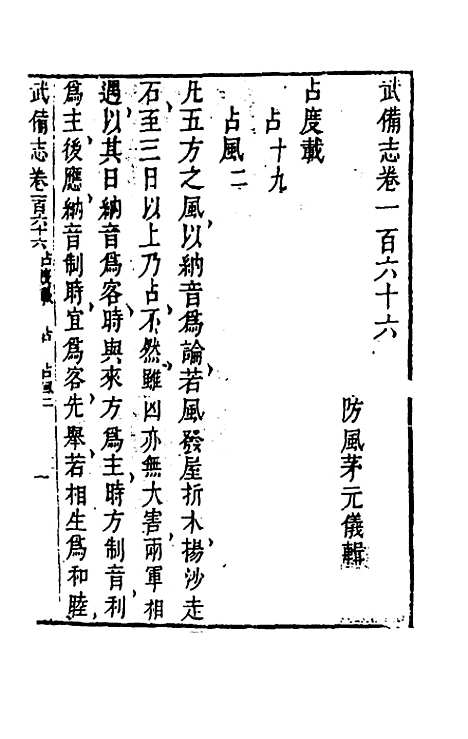 武備志卷一百六十六
防風茅元儀輯
占度載
占十九
占風二
凡五方之風以納音爲論若風發屋折木揚沙走
石至三日以上乃占不然雖凶亦無大害兩軍相
遇以其日納音爲客時與來方爲主時方制音利
爲主後應納音制時宜爲客先舉若相生爲和睦
武備志卷一百六十六 占度載 占 占風二 一